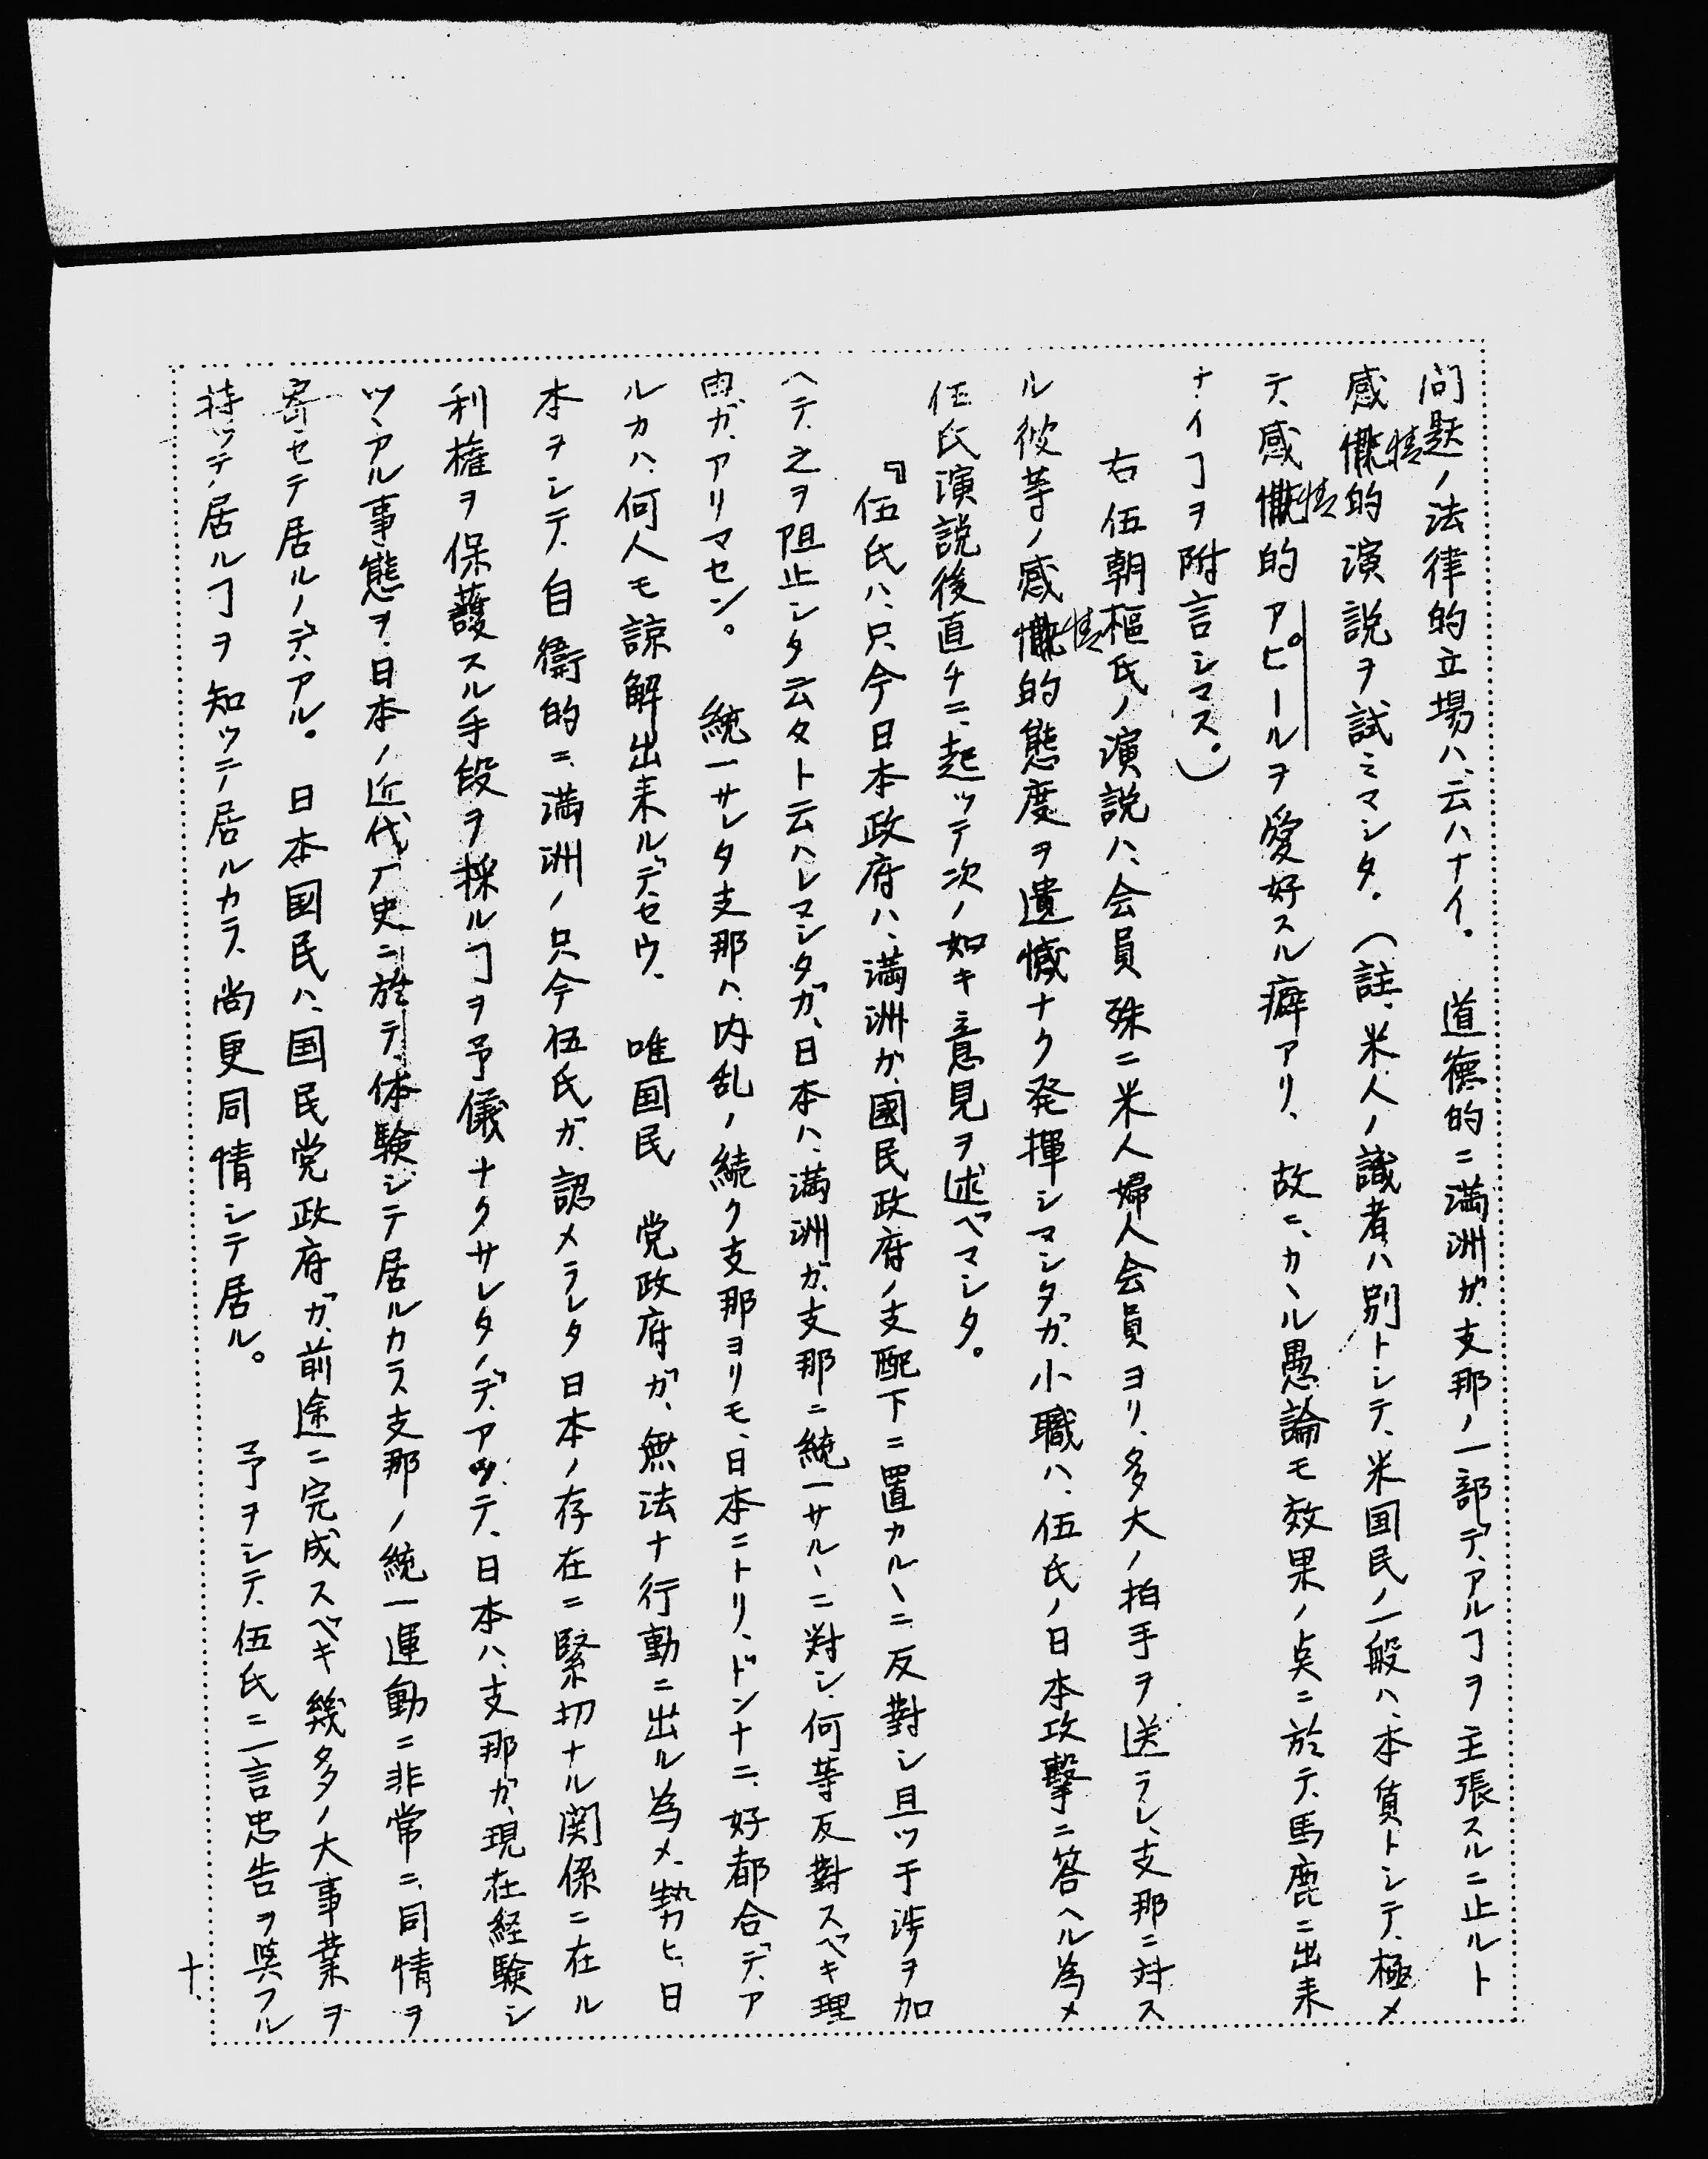 问題ノ法律的立場ハ、云ハナイ。 道徳的ニ満洲ガ、支那ノ一部デ、アルヿヲ主張スルニ止ルト
感情的演説ヲ試ミマシタ。(註、米人ノ識者ハ別トシテ、米国民ノ一般ハ、本質トシテ、極メ
テ、感情的アピールヲ愛好スル癖アリ、 故ニ、カヽル愚論モ效果ノ点ニ於テ、馬鹿ニ出来
ナイヿヲ附言シマス。)
右伍朝樞氏ノ演説ハ、会員殊ニ米人婦人会員ヨリ、多大ノ拍手ヲ送ラレ、支那ニ対ス
ル彼等ノ感情的態度ヲ遺憾ナク発揮シマシタガ、小職ハ、伍氏ノ日本攻撃ニ答ヘル為メ
伍氏演説後直チニ、起ッテ次ノ如キ意見ヲ述ベマシタ。
『伍氏ハ、只今日本政府ハ、満洲ガ、國民政府ノ支配下ニ置カルヽニ反對シ且ツ干渉ヲ加
ヘテ、之ヲ阻止シタ云々ト云ハレマシタガ、日本ハ、満洲ガ、支那ニ統一サルヽニ對シ、何等反對スベキ理
由ガ、アリマセン。 統一サレタ支那ハ、内乱ノ続ク支那ヨリモ、日本ニトリ、ドンナニ、好都合デ、ア
ルカハ、何人モ諒解出来ルデセウ。 唯国民党政府ガ、無法ナ行動ニ出ル為メ、勢ヒ、日
本ヲシテ、自衞的ニ、満洲ノ只今伍氏ガ、認メラレタ日本ノ存在ニ緊切ナル関係ニ在ル
利権ヲ保護スル手段ヲ採ルヿヲ予儀ナクサレタノデ、アッテ、日本ハ、支那ガ、現在経験シ
ツヽアル事態ヲ、日本ノ近代史ニ於テ、体験シテ居ルカラ支那ノ統一運動ニ非常ニ、同情ヲ
寄セテ居ルノデ、アル。 日本国民ハ、国民党政府ガ、前途ニ完成スベキ幾多ノ大事業ヲ
持ッテ、居ルヿヲ知ッテ居ルカラ、尚更同情シテ居ル。 予ヲシテ、伍氏ニ一言忠告ヲ與フル
十.